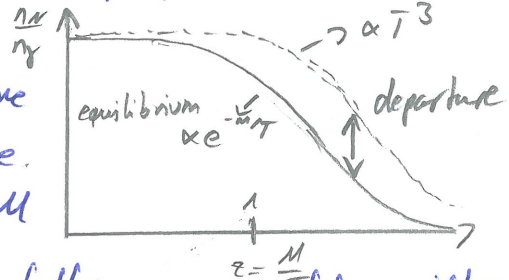 n_N
n_γ
∝ T^3
departure
equilibrium
∝ e^{-M/T}
e.
M
1
z = M